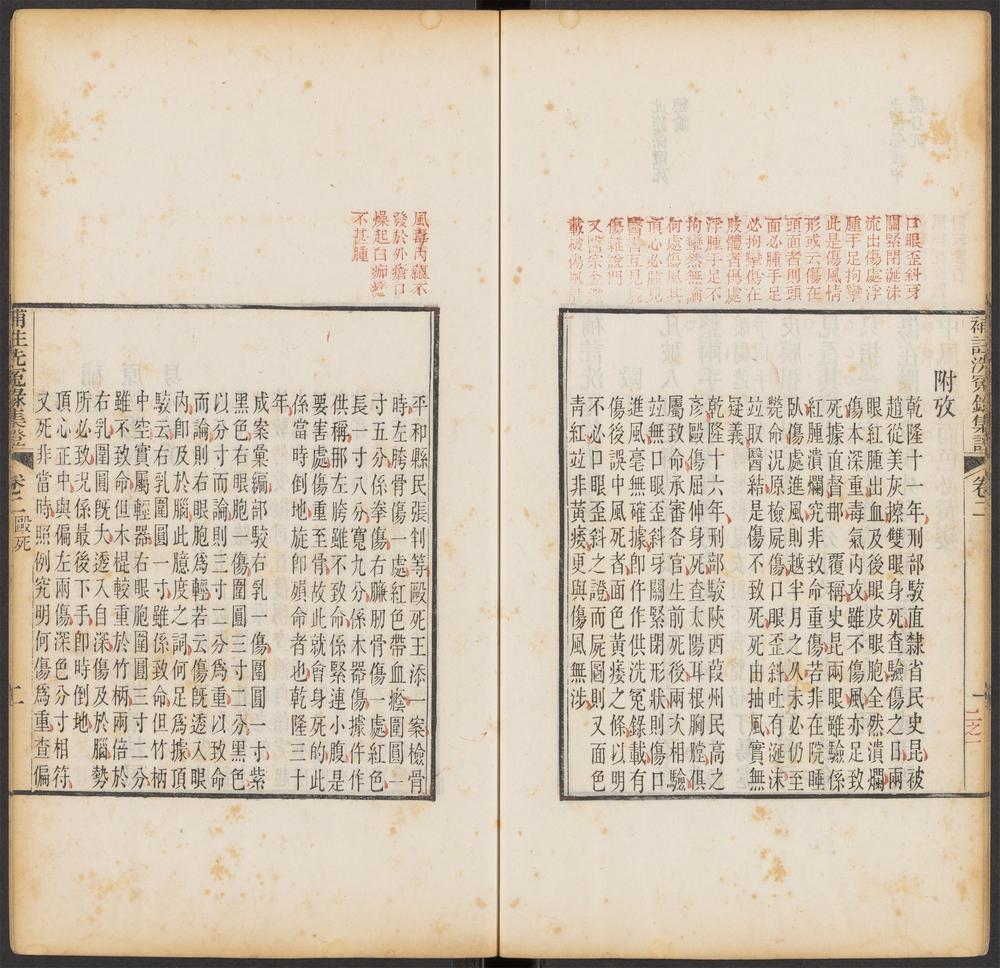 口眼歪斜牙
關緊閉涎沫
流出傷處浮
腫手足拘攣
此是傷風情
形或云傷在
頭面者則頭
面必腫手足
必拘攣傷在
肢體者傷處
浮腫手足不
拘攣然無論
何處傷風其
頂心必腫見
醫書互見屍
傷雜說門
又醫宗金
載被傷風
補註洗冤錄集證
卷二
附攷
乾隆十一年刑部駁直隸省民史昆被
趙從美灰擦雙眼身死查驗傷之日兩
眼紅腫出血及後眼皮眼胞全然潰爛
傷本深重毒氣內攻雖不傷風亦足致
死據直督那 覆稱史昆兩眼雖驗係
紅腫潰爛究非致命重傷若非在院睡
臥傷處進風則越半月之久未必仍至
斃命況原檢屍傷口眼歪斜吐有涎沫
竝取醫結是傷不致死死由抽風實無
疑義
乾隆十六年刑部駁陝西葭州民高之
彥毆傷屈伸身死查太陽耳根胸膛俱
屬致命承審各官生前死後兩次相驗
竝無口眼歪斜牙關緊閉形狀則傷口
進風毫無確據卽仵作供洗冤錄載有
傷後誤中風死者面色黃痿之條以明
不必口眼歪斜之證而屍圖則又面色
青紅竝非黃痿更與傷風無涉
風毒內蘊不
發於外瘡口
燥起白痂
不甚腫
平和縣民張判等毆死王添一案檢骨
時左胯骨傷一處紅色帶血癊圍圓一
寸五分係拳傷右臁肕骨傷一處紅色
長一寸八分寬九分係木器傷據仵作
供稱那左胯雖不致命係緊連小腹是
要害處傷重至骨故此就會身死的此
係當時倒地旋卽殞命者也乾隆三十
年
成案彙編部駁右乳一傷圍圓一寸紫
黑色右眼胞一傷圍圓三寸二分黑色
以分寸而論則三寸二分爲重以致命
而論則右眼胞爲輕若云傷旣透入眼
內卽及於腦此臆度之詞何足爲據頂
駁云右乳圍圓一寸雖係致命但竹柄
中空實屬輕器右眼胞圍圓三寸二分
雖不致命但木棍較重於竹柄兩倍於
右乳圍圓旣大透入自深傷及於腦勢
所必致況係最後下手卽時倒地
頂心正中與偏左兩傷深色分寸相符
又死非當時照例究明何傷爲重查偏
補註洗冤錄集證
卷二 毆死